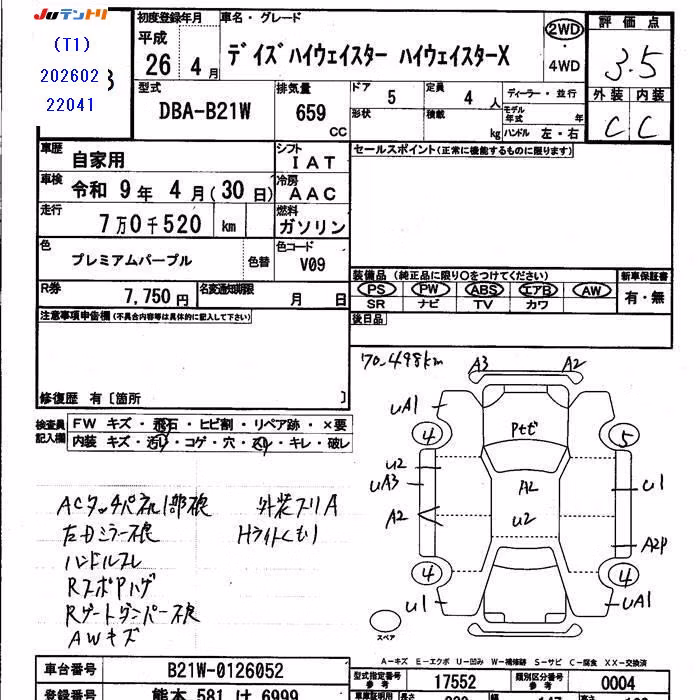 Juテントリ
(T1)
202602
22041
初度登録年月
平成
26年 4月
車名・グレード
デイズハイウェイスター ハイウェイスターX
2WD
・
4WD
評価点
3.5
外装 内装
C C
型式
DBA-B21W
排気量
659
CC
ドア
5
定員
4人
形状
積載
kg
ディーラー・並行
モデル年式 年
ハンドル 左・右
車歴
自家用
シフト
IAT
車検
令和 9年 4月(30日)
冷房
AAC
走行
7万0千520 km
燃料
ガソリン
色
プレミアムパープル
色替
色コード
V09
R券
7,750円
名変通知期限
月 日
セールスポイント(正常に機能するものに限ります)
装備品(純正品に限り○をつけてください)
新車保証書
PS PW ABS エアB AW
SR ナビ TV カワ
有・無
後日品
注意事項申告欄(不具合内容等は具体的に記入して下さい)
修復歴 有〔箇所 〕
検査員記入欄
FW キズ・飛石・ヒビ割・リペア跡・×要
内装 キズ・汚レ・コゲ・穴・スレ・キレ・破レ
70,498km
A3 A2
uA1
4
5
Pセビ
u2
uA3
A2
A2
u2
u1
A2P
4
4
u1
uA1
スペア
ACタッチパネル1部不良 外装スリA
左Dミラー不良 Hライトくもり
ハンドルスレ
RスポPハゲ
Rゲートダンパー不良
AWキズ
A-キズ E-エクボ U-凹み W-補修跡 S-サビ C-腐食 XX-交換済
車台番号
B21W-0126052
型式指定番号
参考
17552
類別区分番号
参考
0004
登録番号
熊本 581 け 6999